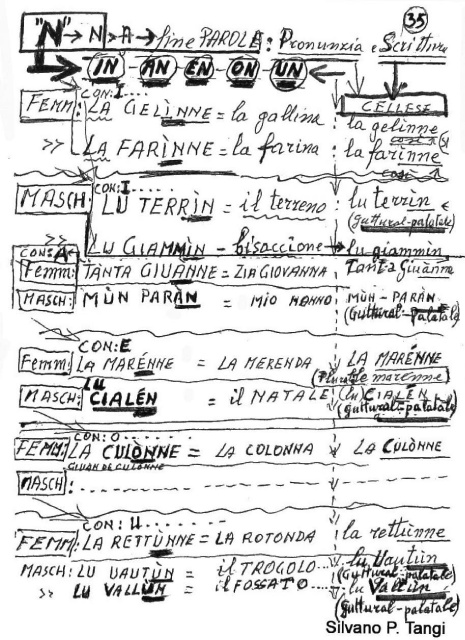 35
"N" → N > A → fine PAROLE: Pronunzia e Scrittura
IN - AN - EN - ON - UN
CON: I....
CELLESE
FEMM: LA GELÌNNE = la gallina : la gelinne
così si
>> LA FARÌNNE = la farina : la farinne
così
MASCH: CON: I.....
LU TERRÌN = il terreno : lu terrìn
(guttural-palatale)
>> LU GIAMMÌN - bisaccione → lu giammìn
CON: A
Femm: TANTA GIUANNE = ZIA GIOVANNA, Tanta Giuànna
MASCH: MÙN PARÀN = MIO NONNO MÙN-PARÀN
(Guttural-palatale)
CON: E
Femm: LA MARÉNNE = LA MERENDA LA MARÉNNE
(Plurale marenne)
MASCH: LU CIALÉN = il NATALE (lu) CIALÉN
(guttural-palatale)
CON: O........
FEMM: LA CULÒNNE = LA COLONNA LA CULÒNNE
GIUAN DE CULONNE
MASCH:
CON: U.......
FEMM: LA RETTÙNNE = LA ROTONDA la rettùnne
MASCH: LU UAUTÙN = il TROGOLO... lu Uautùn
(Guttural-palatale)
>> LU VALLÙN = il FOSSATO... lu Vallùn
(guttural-palatale)
Silvano P. Tangi